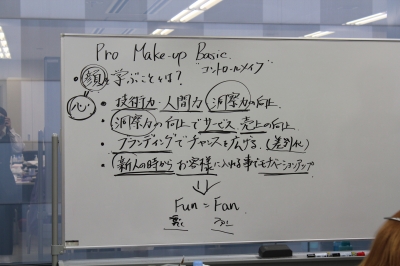 Pro Make-up Basic.
"コントロールメイク"
・顔を学ぶこととは?
心
・技術力・人間力 洞察力の向上
・洞察力の向上でサービス 売上の向上
・ブランディングでチャンスを広げる (差別化)
・新人の時からお客様に入れる事でモチベーションアップ
Fun = Fan